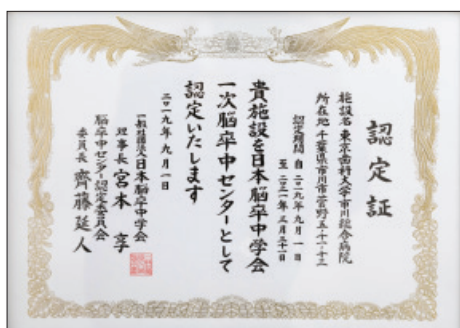 認定証
施設名 東京歯科大学市川総合病院
所在地 千葉県市川市菅野五-十一-十三
認定期間 自 二〇一九年九月一日
至 二〇二一年三月三十一日
貴施設を日本脳卒中学会
一次脳卒中センターとして
認定いたします
二〇一九年九月一日
一般社団法人日本脳卒中学会
理事長 宮本 享
脳卒中センター認定委員会
委員長 齊藤延人